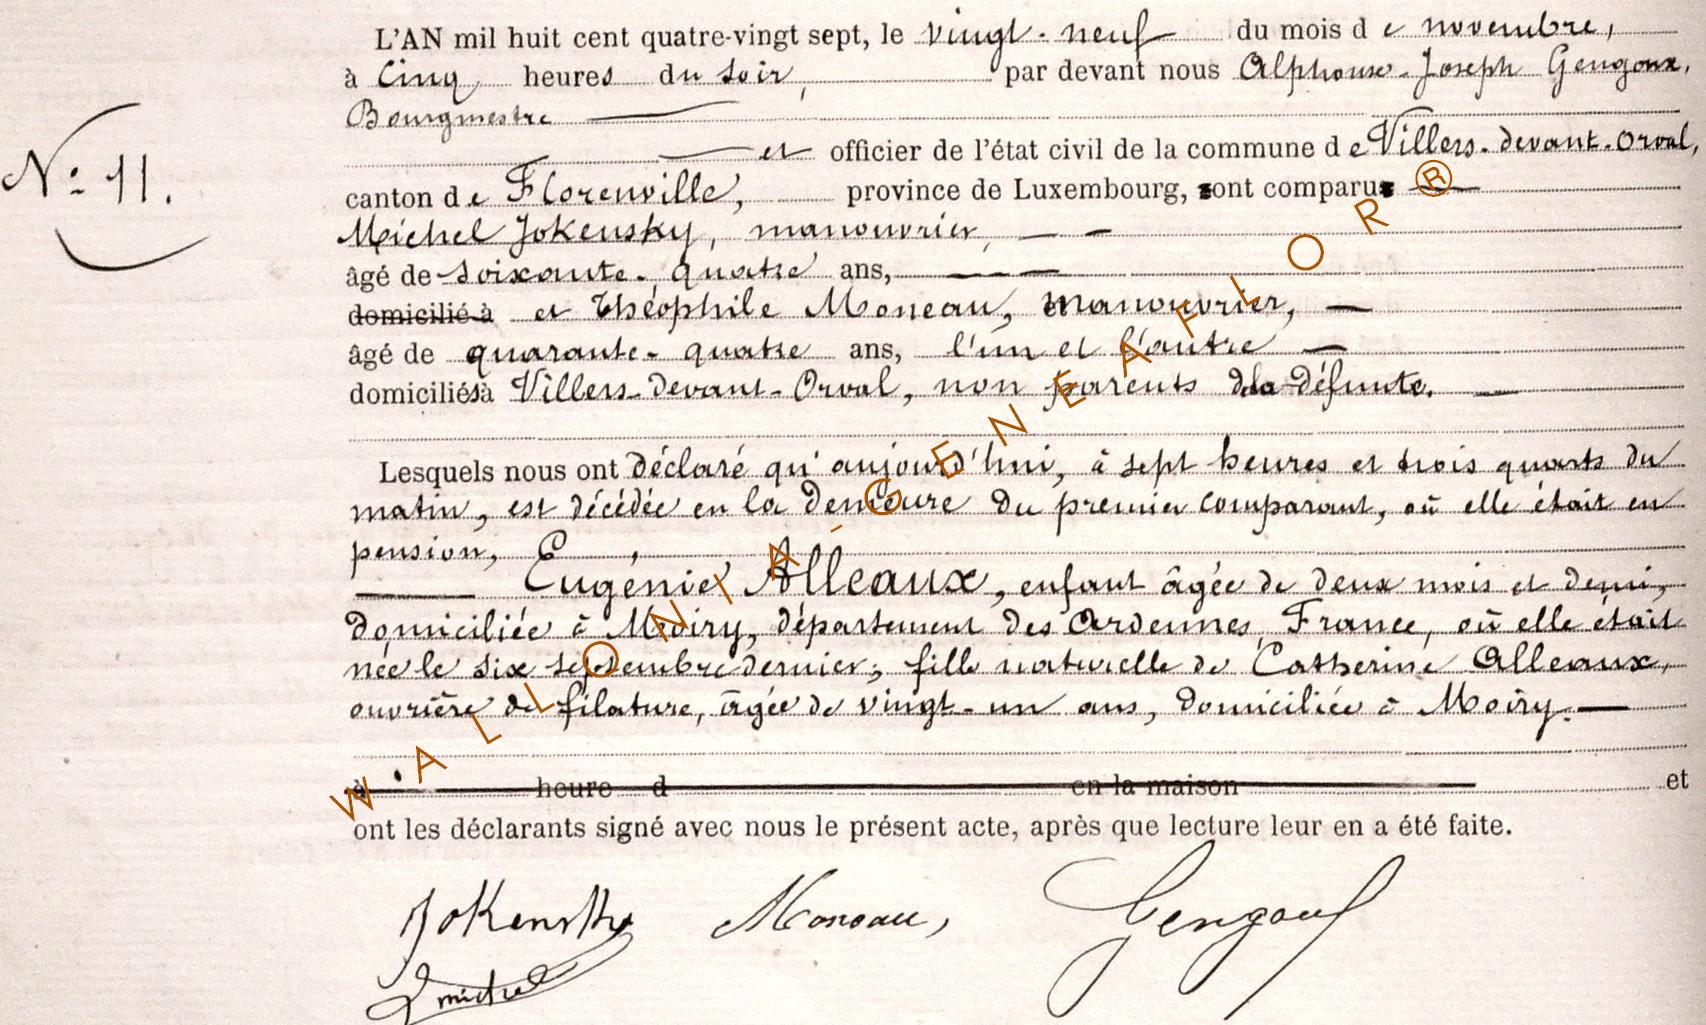 L'AN mil huit cent quatre-vingt sept, le vingt-neuf du mois de novembre,
à cinq heures du soir, par devant nous Alphonse-Joseph Gengoux,
Bourgmestre
et officier de l'état civil de la commune de Villers-devant-Orval,
N° 11.
canton de Florenville, province de Luxembourg, sont comparus
Michel Jokensky, manouvrier,
âgé de soixante-quatre ans,
domicilié à et Théophile Moneau, manouvrier,
âgé de quarante-quatre ans, l'un et l'autre
domiciliés à Villers-devant-Orval, non parents de la défunte.
Lesquels nous ont déclaré qu'aujourd'hui, à sept heures et trois quarts du
matin, est décédée en la demeure du premier comparant, où elle était en
pension, E
Eugénie Alleaux, enfant âgée de deux mois et demi,
domiciliée à Moiry, département des Ardennes, France, où elle était
née le six septembre dernier; fille naturelle de Catherine Alleaux,
ouvrière de filature, âgée de vingt-un ans, domiciliée à Moiry.
à heure d en la maison et
ont les déclarants signé avec nous le présent acte, après que lecture leur en a été faite.
Jokensky Moneau, Gengoux
michel
WALLONIA-GENEAFLOR®